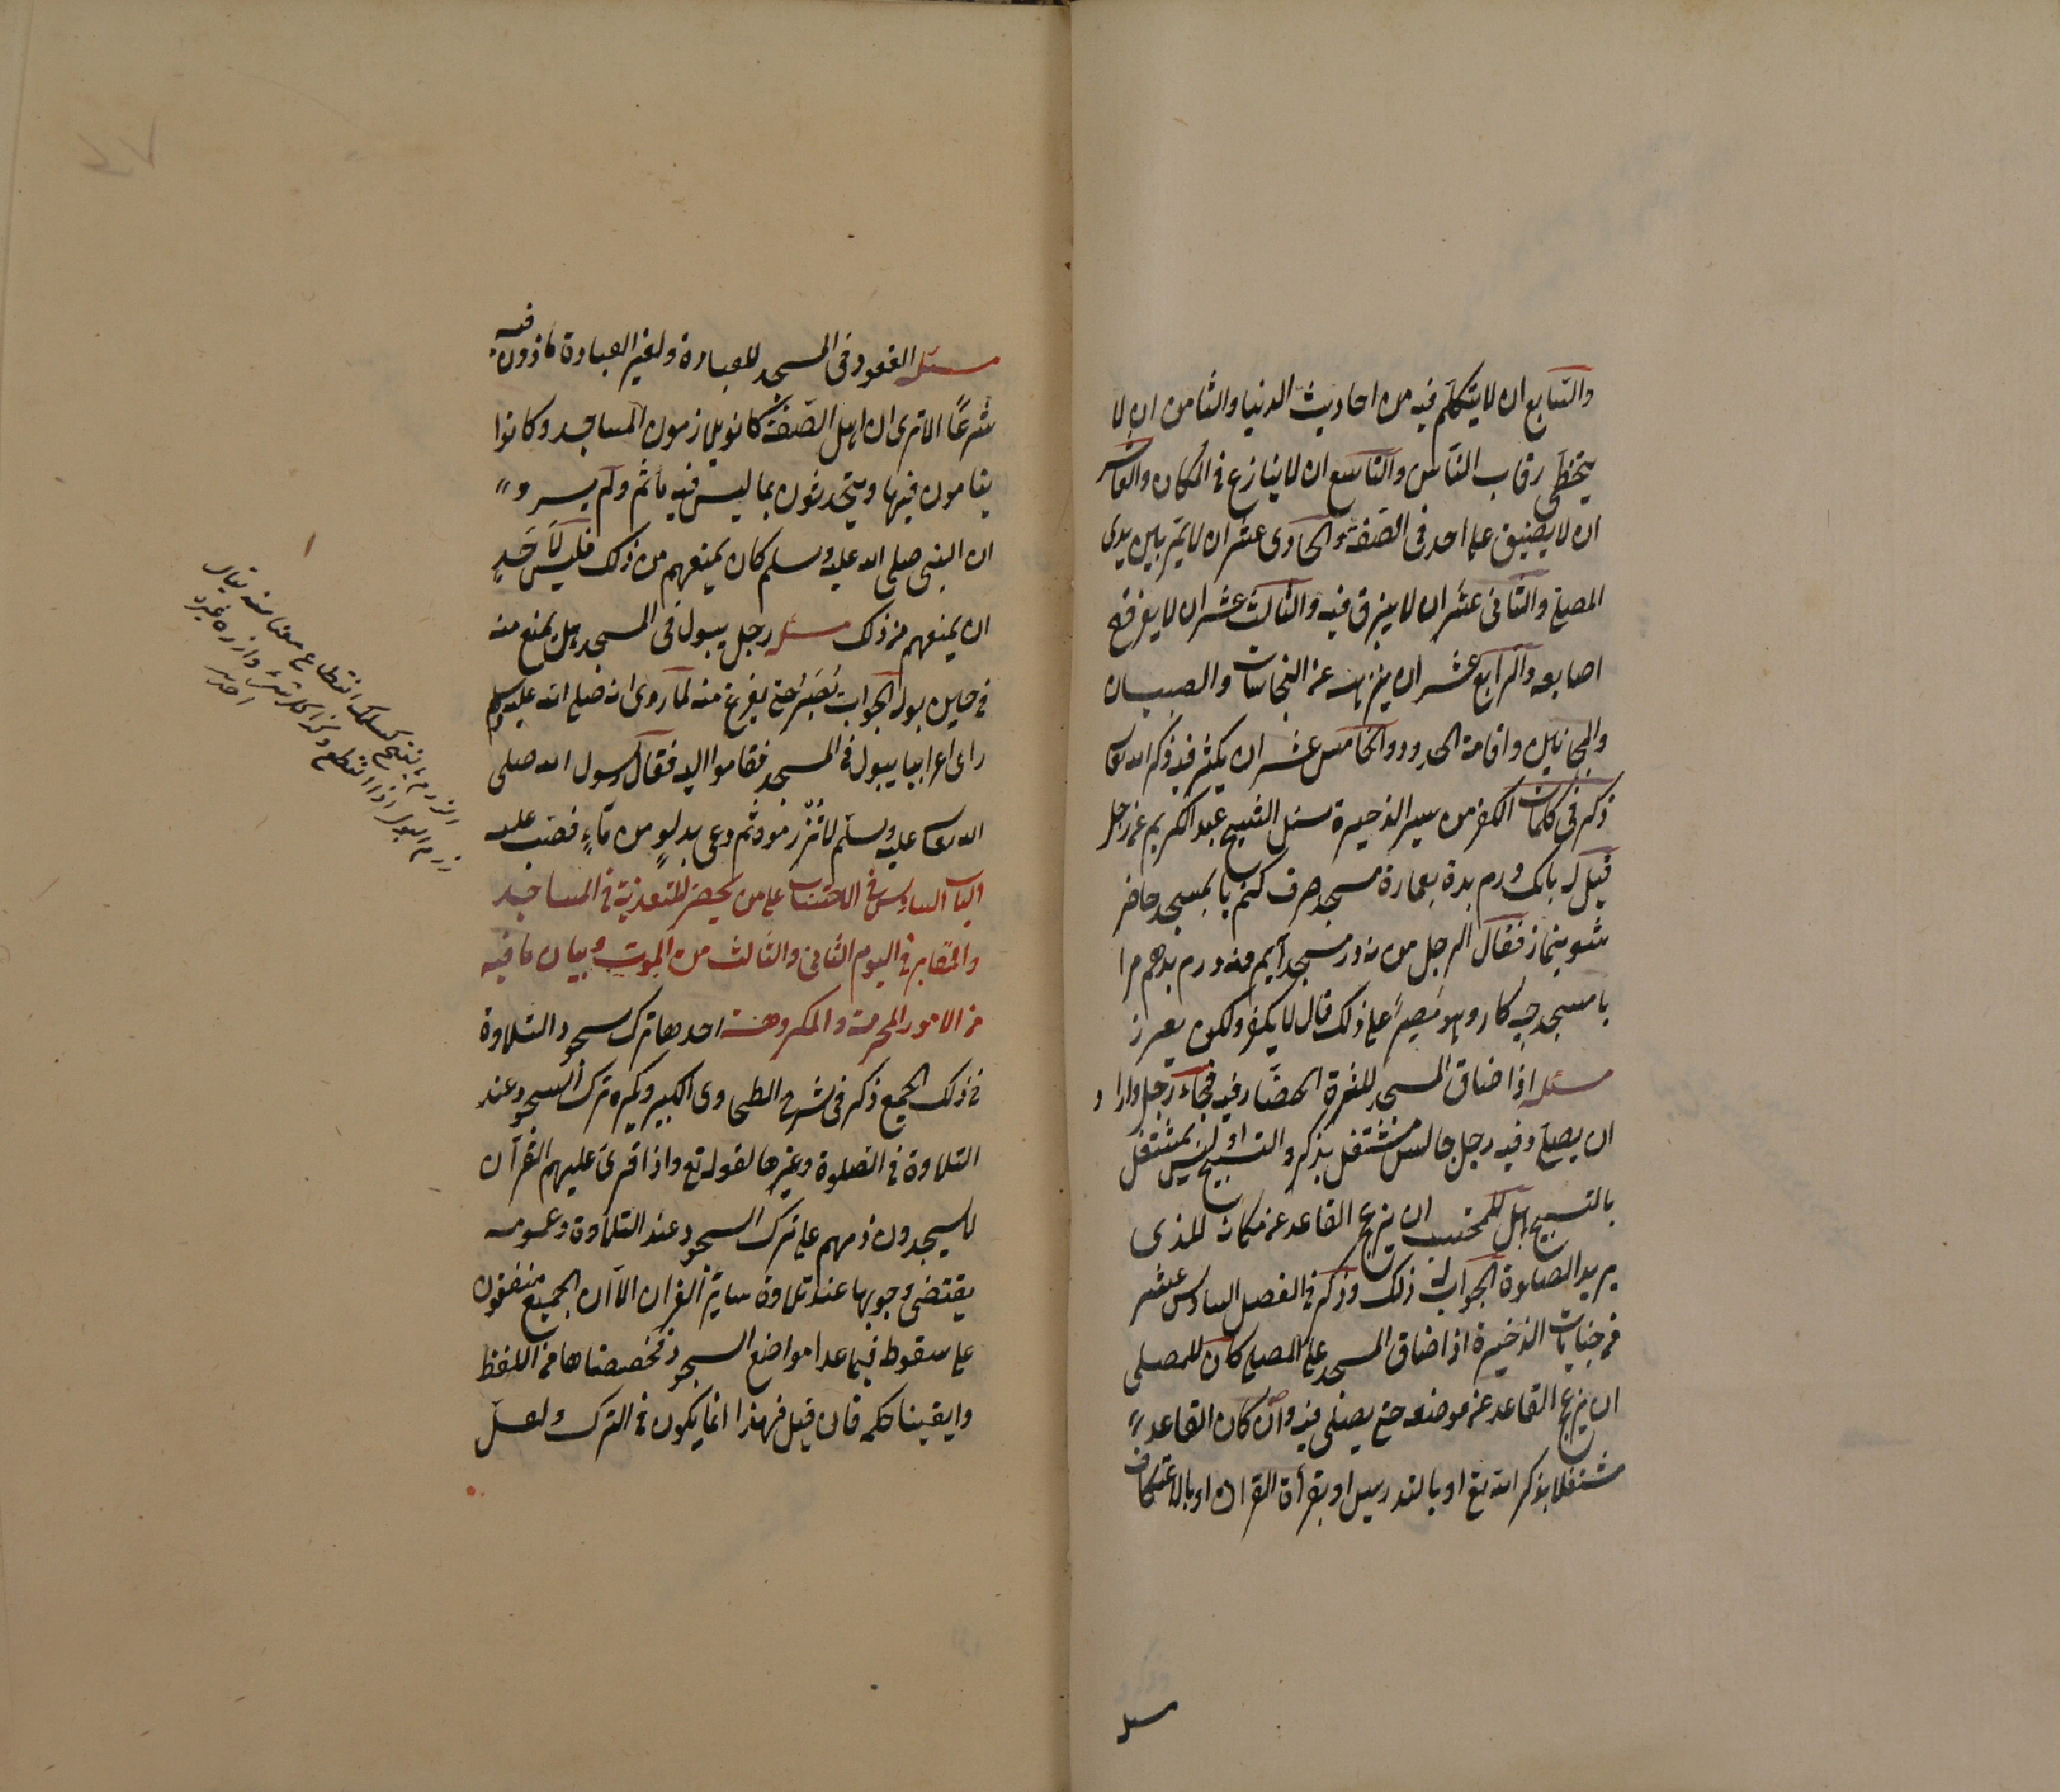 والسابع ان لا يتكلم فيه من احاديث الدنيا والثامن ان لا
يتخطى رقاب الناس والتاسع ان لا ينازع في المكان والعاشر
ان لا يضيق على احد في الصف والحادى عشر ان لا يمر بين يدى
المصلى والثانى عشر ان لا يبزق فيه والثالث عشر ان لا يفرقع
اصابعه والرابع عشر ان ينزهه عن النجاسات والصبيان
والمجانين واقامة الحدود والخامس عشر ان يكثر فيه ذكر الله تعالى
ذكر في كلمات الكفر من سير الذخيرة سئل الشيخ عبد الكريم عن رجل
قيل له بانك درم بده بعمارة مسجد صرف كنم يا بمسجد حاضر
شو بنماز فقال الرجل من نه در مسجد آيم ونه درم بدهم مرا
با مسجد چه كار وهو مصر على ذلك قال لا يكفر ولكن يعزر
مسئله اذا ضاق المسجد لكثرة الحضار فيه فجاء رجل واراد
ان يصلى وفيه رجل جالس مشتغل بذكر والتسبيح او ليس بمشتغل
بالتسبيح هل للمحتسب ان يزعج القاعد عن مكانه للذى
يريد الصلوة الجواب له ذلك وذكر في الفصل السادس عشر
من جنايات الذخيرة اذا ضاق المسجد على المصلى كان للمصلى
ان يزعج القاعد عن موضعه حتى يصلى فيه وان كان القاعد
مشتغلا بذكر الله تع او بالتدريس او بقرأة القران او بالاعتكاف
مسئله
مسئله القعود في المسجد للعبادة ولغير العبادة ماذون فيه
شرعًا الا ترى ان اهل الصفة كانو يلازمون المساجد وكانوا
ينامون فيها ويتحدثون بما ليس فيه مأثم ولم يرو
ان النبى صلى الله عليه وسلم كان يمنعهم من ذلك فليس لأحدٍ
ان يمنعهم من ذلك مسئله رجل يبول في المسجد هل يمنع منه
في حين بوله الجواب يصبر حتى يفرغ منه لما روى انه صلى الله عليه وسلم
راى اعرابيا يبول في المسجد فقاموا اليه فقال رسول الله صلى
الله تعالى عليه وسلم لا تزرموه ثم دعى بدلوٍ من ماءٍ فصب عليه
الباب السادس في الاحتساب على من يحضر للتعزية في المساجد
والمقابر في اليوم الثانى والثالث من الموت وبيان ما فيه
من الامور المحرمة والمكروهة احدها ترك سجود التلاوة
في ذلك الجمع ذكر في شرح الطحاوى الكبير ويكره ترك السجود عند
التلاوة في الصلوة وغيرها لقوله تع واذا قرئ عليهم القرآن
لا يسجدون ذمهم على ترك السجود عند التلاوة وعمومه
يقتضى وجوبها عند تلاوة سائر القران الا ان الجميع متفقون
على سقوطه فيما عدا مواضع السجود فخصصناها من اللفظ
وابقينا حكمه فان قيل فهذا انما يكون في الترك ولعل